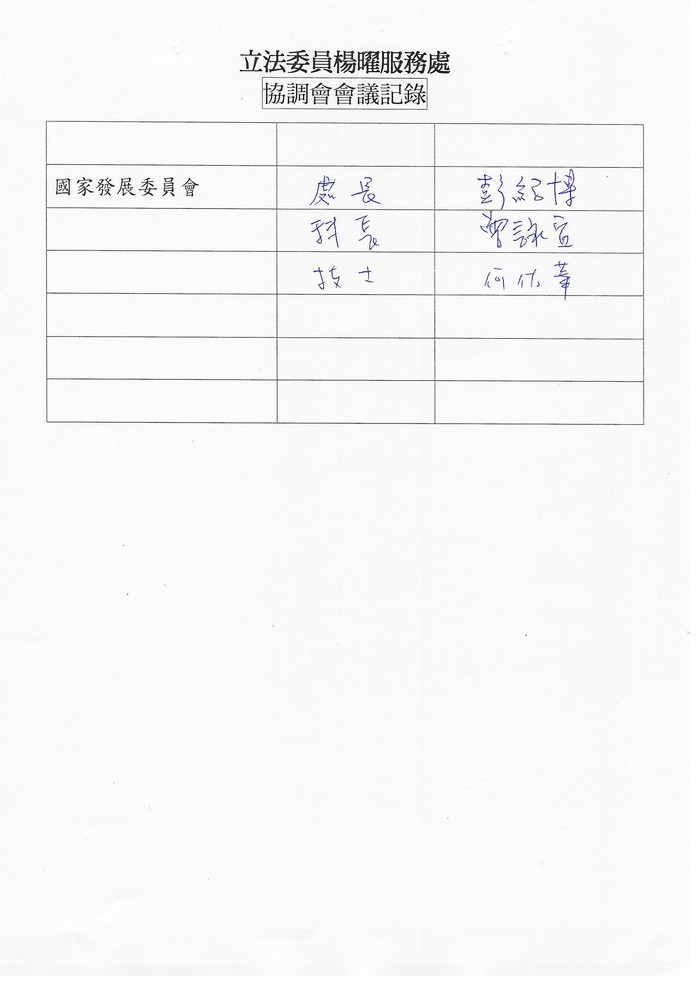 立法委員楊曜服務處
協調會會議記錄
國家發展委員會 處長 彭紹博
科長 曾詠宣
技士 何依蓁